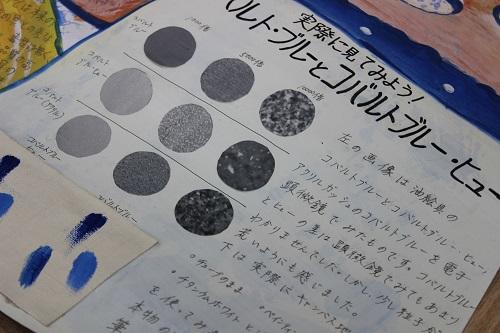 実際に見てみよう!
バルト・ブルーとコバルトブルー・ヒュー
1000倍
5000倍
10000倍
コバルト
ブルー
コバルト
ブルー(アクリル)
コバルトブルー
ヒュー
コバルトブルー
左の画像は油絵具の
コバルトブルーとコバルトブルー・ヒュー、
アクリルガッシュのコバルトブルーを電子
顕微鏡でみたものです。コバルトブルー
とヒューの差は顕微鏡でみてもあまり
わかりませんでした。しかし、少し粒子が
荒いようにも感じました。
下は実際にキャンバスに
・チューブのまま
・ペインティ
・チタニウムホワイトと
を使ってみ
本物の
筆